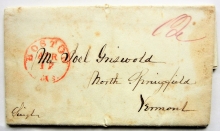 BOSTON
17
Mr Joel Griswold
North Springfield
Vermont